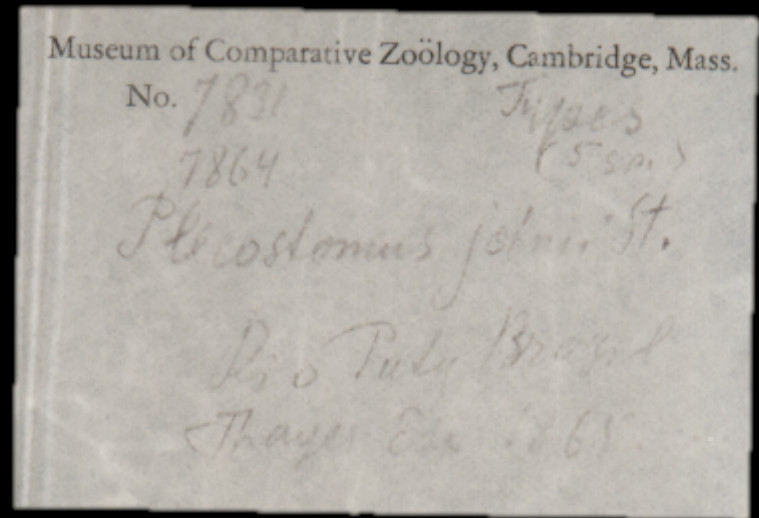 Museum of Comparative Zoölogy, Cambridge, Mass.
No. 7831 Types
7864 (5 sp.)
Plecostomus johnii St.
Rio Puty Brazil
Thayer Ex. 1865